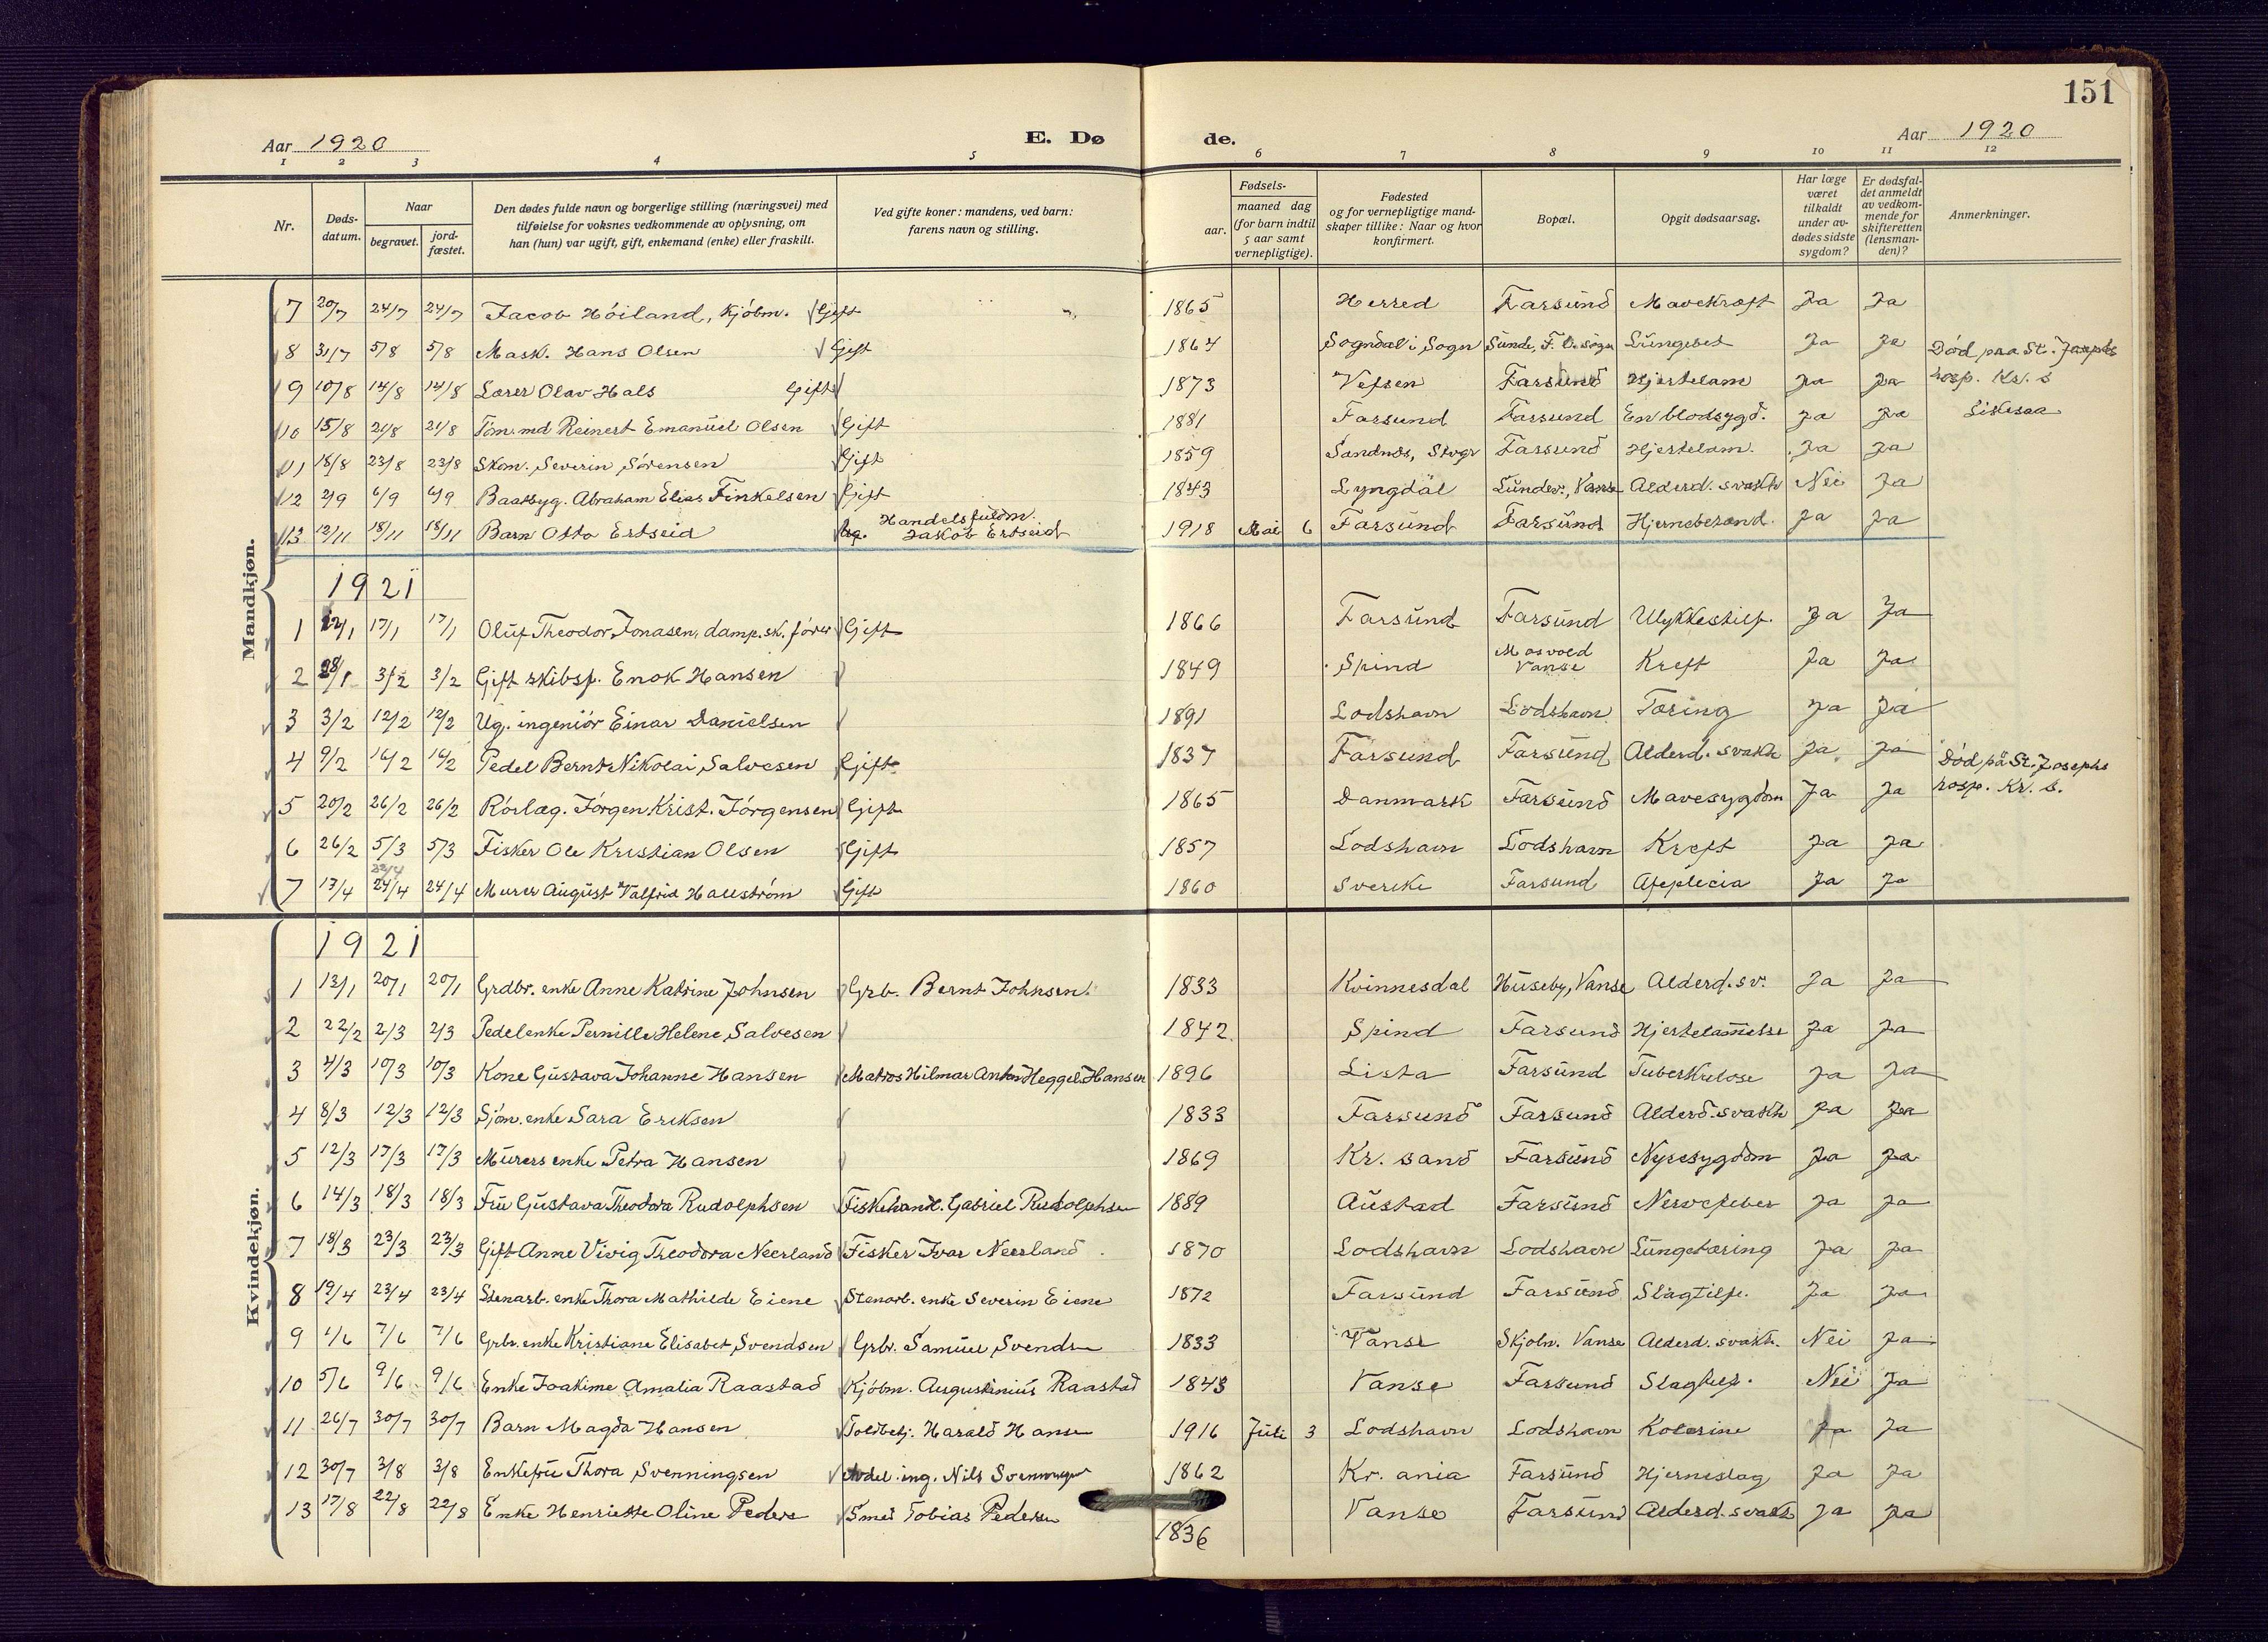 151
Aar 1920 E. Dø de. Aar 1920
1 2 3 4 5 6 7 8 9 10 11 12
Nr. Døds-datum. Naar begravet. jord-fæstet. Den dødes fulde navn og borgerlige stilling (næringsvei) med tilføielse for voksnes vedkommende av oplysning, om han (hun) var ugift, gift, enkemand (enke) eller fraskilt. Ved gifte koner: mandens, ved barn: farens navn og stilling. Fødsels- aar. maaned dag (for barn indtil 5 aar samt vernepligtige). Fødested og for vernepligtige mandskaper tillike: Naar og hvor konfirmert. Bopæl. Opgit dødsaarsag. Har læge været tilkaldt under avdødes sidste sygdom? Er dødsfaldet anmeldt av vedkommende for skifteretten (lensmanden)? Anmerkninger.
Mandkjøn.
7 20/7 24/7 24/7 Jacob Höiland, Kjöbm. Gift 1865 Herred Farsund Mavekræft Ja Ja
8 31/7 5/8 5/8 Mask. Hans Olsen Gift 1864 Sogndal i Sogn Sunde, F. l. sogn Lungebet Ja Ja Död paa St. Josephs
9 10/8 14/8 14/8 Lærer Olav Hals Gift 1873 Vefsen Farsund Hjertelam Ja Ja hosp. Kr. s
10 15/8 21/8 21/8 Töm.md Reinert Emanuel Olsen Gift 1881 Farsund Farsund En blodsygd. Ja Ja
11 18/8 23/8 23/8 Skom. Severin Sörensen Gift 1859 Sandnes, Stvgr Farsund Hjertelam. Ja Ja
12 2/9 6/9 6/9 Baatbyg. Abraham Elias Finkelsen Gift 1843 Lyngdal Lunder, Vanse Alderd. svakh Nei Ja
13 12/11 18/11 18/11 Barn Otto Ertseid Handelsfuldm. Jakob Ertseid 1918 Mai 6 Farsund Farsund Hjernebetænd. Ja Ja
1921
1 12/1 17/1 17/1 Oluf Theodor Jonasen, damp.sk. förer Gift 1866 Farsund Farsund Ulykkestilf. Ja Ja
2 28/1 3/2 3/2 Gift skibsf. Enok Hansen 1849 Spind Mosvold Vanse Kreft Ja Ja
3 3/2 12/2 12/2 Ug. ingeniör Einar Danielsen 1891 Lodshavn Lodshavn Tæring Ja Ja
4 9/2 16/2 16/2 Pedel Bernt Nikolai Salvesen Gift 1837 Farsund Farsund Alderd. svakh Ja Ja
5 20/2 26/2 26/2 Rörlæg. Jörgen Krist. Jörgensen Gift 1865 Danmark Farsund Mavesygdom Ja Ja Död på St. Josephs hosp. Kr. s.
6 26/2 5/3 5/3 Fisker Ole Kristian Olsen Gift 1857 Lodshavn Lodshavn Kreft Ja Ja
22/4
7 17/4 24/4 24/4 Murer August Valfrid Hallström Gift 1860 Sverike Farsund Apeplecia Ja Ja
Kvindekjøn.
1921
1 13/1 20/1 20/1 Grdbr. enke Anne Katrine Johnsen Grb. Bernt Johnsen. 1833 Kvinnesdal Huseby, Vanse Alderd. sv. Ja Ja
2 22/2 2/3 2/3 Pedelenke Pernille Helene Salvesen 1842 Spind Farsund Hjertelammelse Ja Ja
3 4/3 10/3 10/3 Kone Gustava Johanne Hansen Matros Hilmar Anton Heggel. Hansen 1896 Lista Farsund Tuberkulose Ja Ja
4 8/3 12/3 12/3 Sjöm. enke Sara Eriksen 1833 Farsund Farsund Alderd. svakh Ja Ja
5 12/3 17/3 17/3 Murers enke Petra Hansen 1869 Kr. sand Farsund Nyresygdom Ja Ja
6 14/3 18/3 18/3 Fru Gustava Theodora Rudolphsen Fiskehandl. Gabriel Rudolphsen 1889 Austad Farsund Nervefeber Ja Ja
7 18/3 23/3 23/3 Gift Anne Vivig Theodora Neerland Fisker Ivar Neerland 1870 Lodshavn Lodshavn Lungetæring Ja Ja
8 19/4 23/4 23/4 Stenarb. enke Thora Mathilde Eiene Stenarb. enke Severin Eiene 1872 Farsund Farsund Slagtilf. Ja Ja
9 1/6 7/6 7/6 Grbr. enke Kristiane Elisabet Svendsen Grbr. Samuel Svendsen 1833 Vanse Skjoln. Vanse Alderd. svakh. Nei Ja
10 5/6 9/6 9/6 Enke Joakime Amalia Raastad Kjöbm. Augustinius Raastad 1843 Vanse Farsund Slagtilf. Nei Ja
11 26/7 30/7 30/7 Barn Magda Hansen Toldbetj. Harald Hansen 1916 Juli 3 Lodshavn Lodshavn Kolerine Ja Ja
12 30/7 3/8 3/8 Enkefru Thora Svenningsen Avdel. ing. Nils Svenningsen 1862 Kr. ania Farsund Hjerneslag Ja Ja
13 17/8 22/8 22/8 Enke Henriette Oline Peders Smed Tobias Pedersen 1836 Vanse Farsund Alderd. svakh Ja Ja